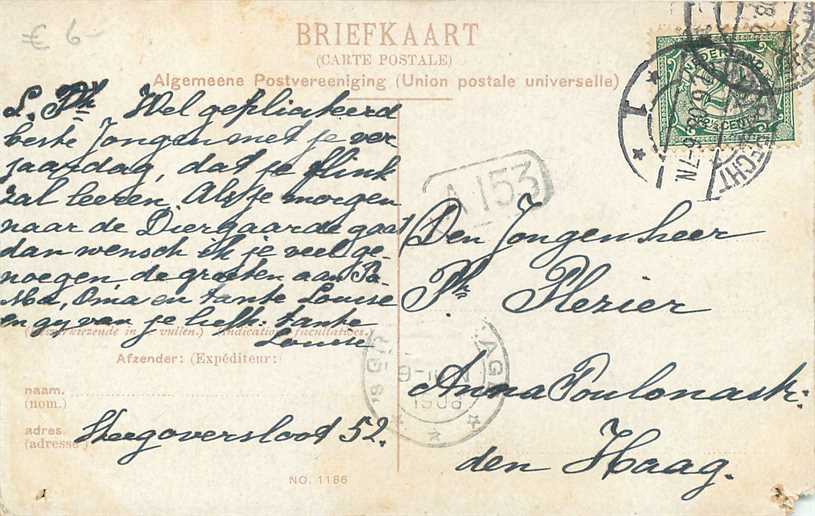 € 6-
BRIEFKAART
(CARTE POSTALE)
Algemeene Postvereeniging (Union postale universelle)
NEDERLAND
L. Ph Wel gefliciteerd
beste Jongen met je ver
jaardag, dat je flink
zal leeren. Als je morgen
naar de Diergaarde gaat
dan wensch ik je veel ge-
noegen de groeten aan Pa-
Ma, Oma en tante Louise
en gy van je liefh. tante
Louise
Afzender: (Expéditeur:)
naam.
(nom.)
adres
(adresse)
Steegoversloot 52.
NO. 1186
A 153
Den Jongenheer
Ph Plezier
Anna Poulonastr:
den Haag.
1908